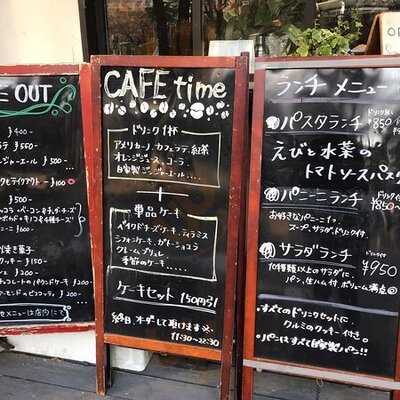 E OUT
¥400-
¥550-
ジンジャーエール ¥500-
クセテイクアウト- ¥100
¥150-
¥200-
チョコレートのパウンドケーキ ¥200-
¥200-
CAFE time
ドリンク1杯
アメリカーノ、カフェラテ、紅茶
オレンジジュース、コーラ
自家製ジンジャーエール....
+
単品ケーキ
ベイクドチーズケーキ、ティラミス
シフォンケーキ、ガトーショコラ
クレームブリュレ
季節のケーキ.....
ケーキセット 150円引
終日オーダーして頂けます
11:30~22:30
ランチ メニュー
パスタランチ ドリンク付 ¥850
えびと水菜の
トマトソースパスタ
パニーニランチ ドリンク付 ¥850~
お好きなパニーニ1ケ、
スープ、サラダ、ドリンク付
サラダランチ ドリンク付 ¥950
10種類以上のサラダに、
パン、生ハム付、ボリューム満点
・すべてのドリンクセットに
クルミのクッキー付き。
・パンはすべて自家製パン!!